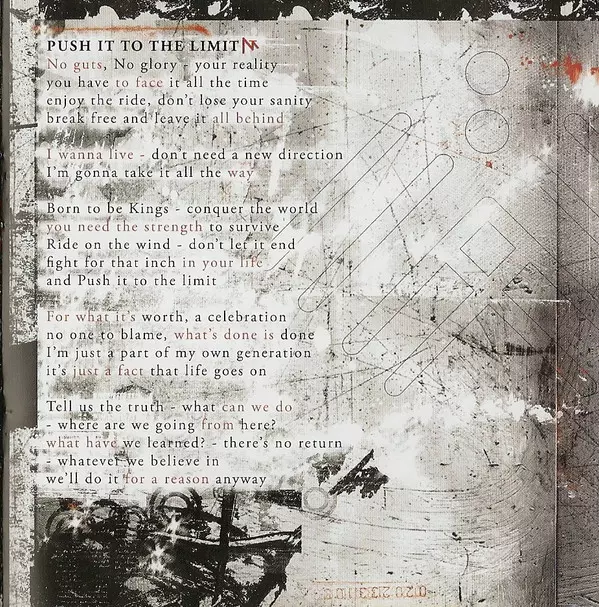 PUSH IT TO THE LIMIT
No guts, No glory - your reality
you have to face it all the time
enjoy the ride, don't lose your sanity
break free and leave it all behind
I wanna live - don't need a new direction
I'm gonna take it all the way
Born to be Kings - conquer the world
you need the strength to survive
Ride on the wind - don't let it end
fight for that inch in your life
and Push it to the limit
For what it's worth, a celebration
no one to blame, what's done is done
I'm just a part of my own generation
it's just a fact that life goes on
Tell us the truth - what can we do
- where are we going from here?
what have we learned? - there's no return
- whatever we believe in
we'll do it for a reason anyway